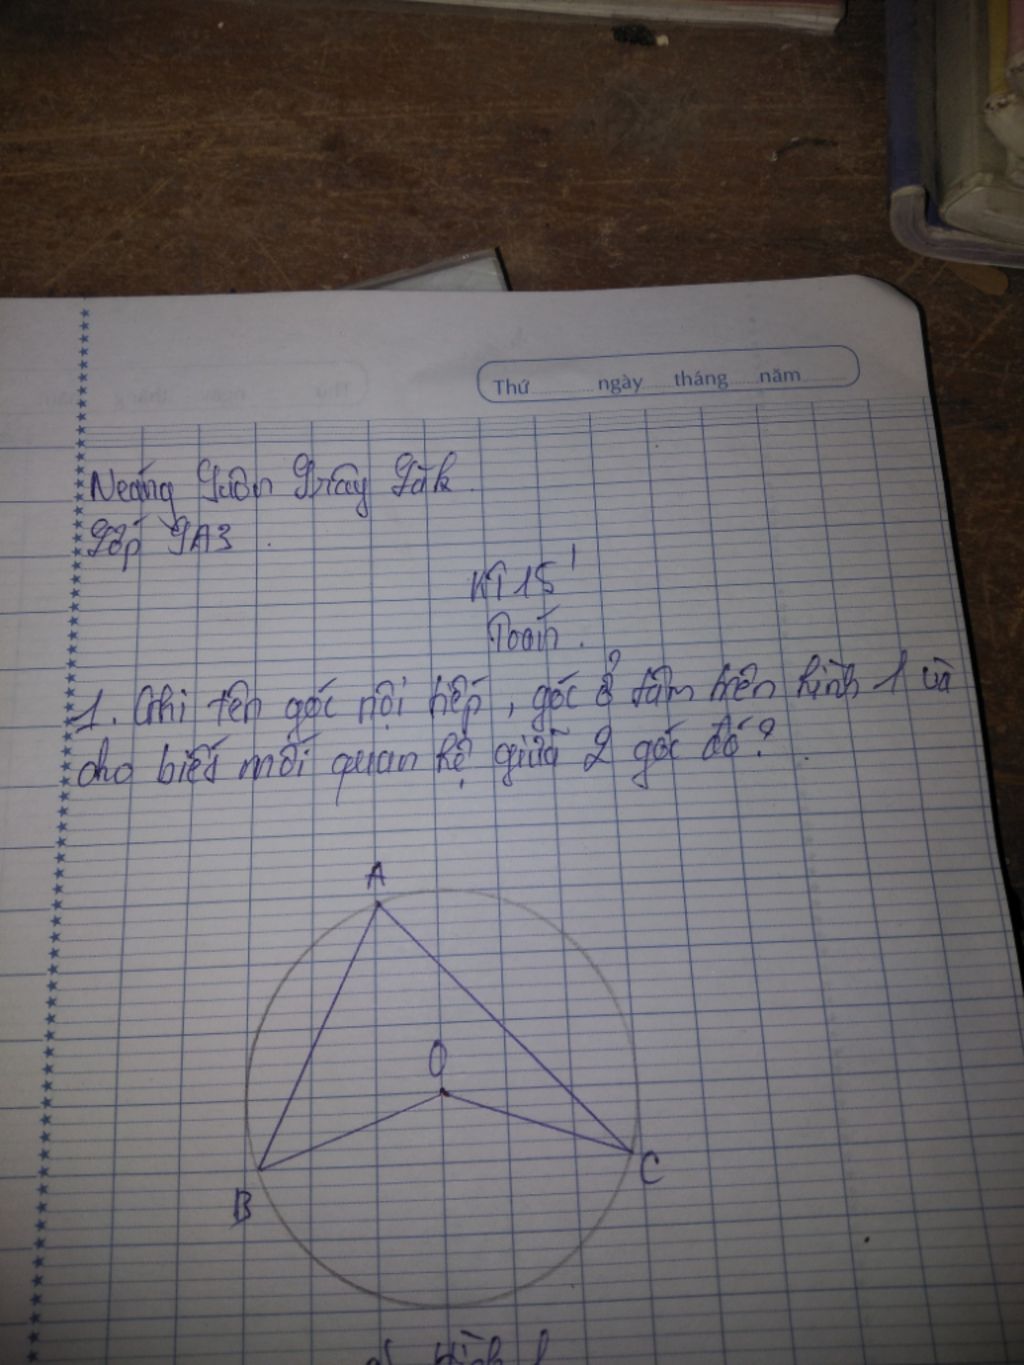 Thứ ngày tháng năm
Neáng
Lớp 9A3.
KT 15'
Toán.
1. Ghi tên góc nội tiếp, góc ở tâm trên hình 1 và
cho biết mối quan hệ giữa 2 góc đó?
A
O
B
C
Hình 1